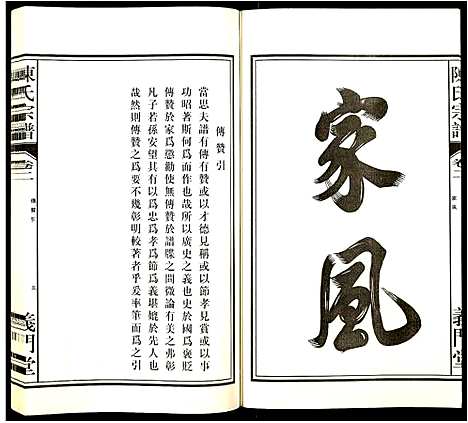 陳氏宗譜
卷二
家風
義門堂
家風
傳贊引
當思夫譜有傳有贊或以才德見稱或以節孝見賞或以事
功昭著斯何為而作也所以廣史之義也史於國為褒貶
傳贊於家為懲勸使無傳贊於譜牒之間微論有美之弗彰
凡子若孫安望其有以為忠為孝為節為義堪媲於先人也
哉然則傳贊之為要不幾彰明較著者乎爰率筆而為之引
陳氏宗譜
卷二
傳贊引
三
義門堂